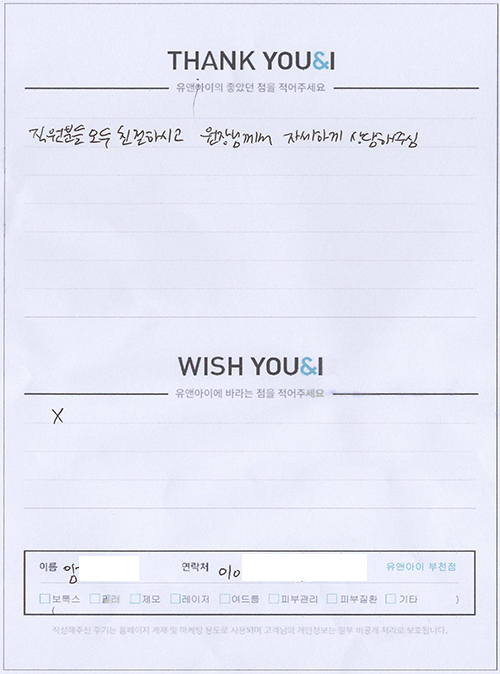 THANK YOU&I
유앤아이의 좋았던 점을 적어주세요
직원분들 모두 친절하시고 원장님께서 자세하게 상담해주심
WISH YOU&I
유앤아이에 바라는 점을 적어주세요
X
이름 연락처 010 유앤아이 부천점
보톡스 필러 제모 레이저 여드름 피부관리 피부질환 기타 ( )
작성해주신 후기는 홈페이지 게재 및 마케팅 용도로 사용되며 고객님의 개인정보는 일부 비공개 처리로 보호됩니다.